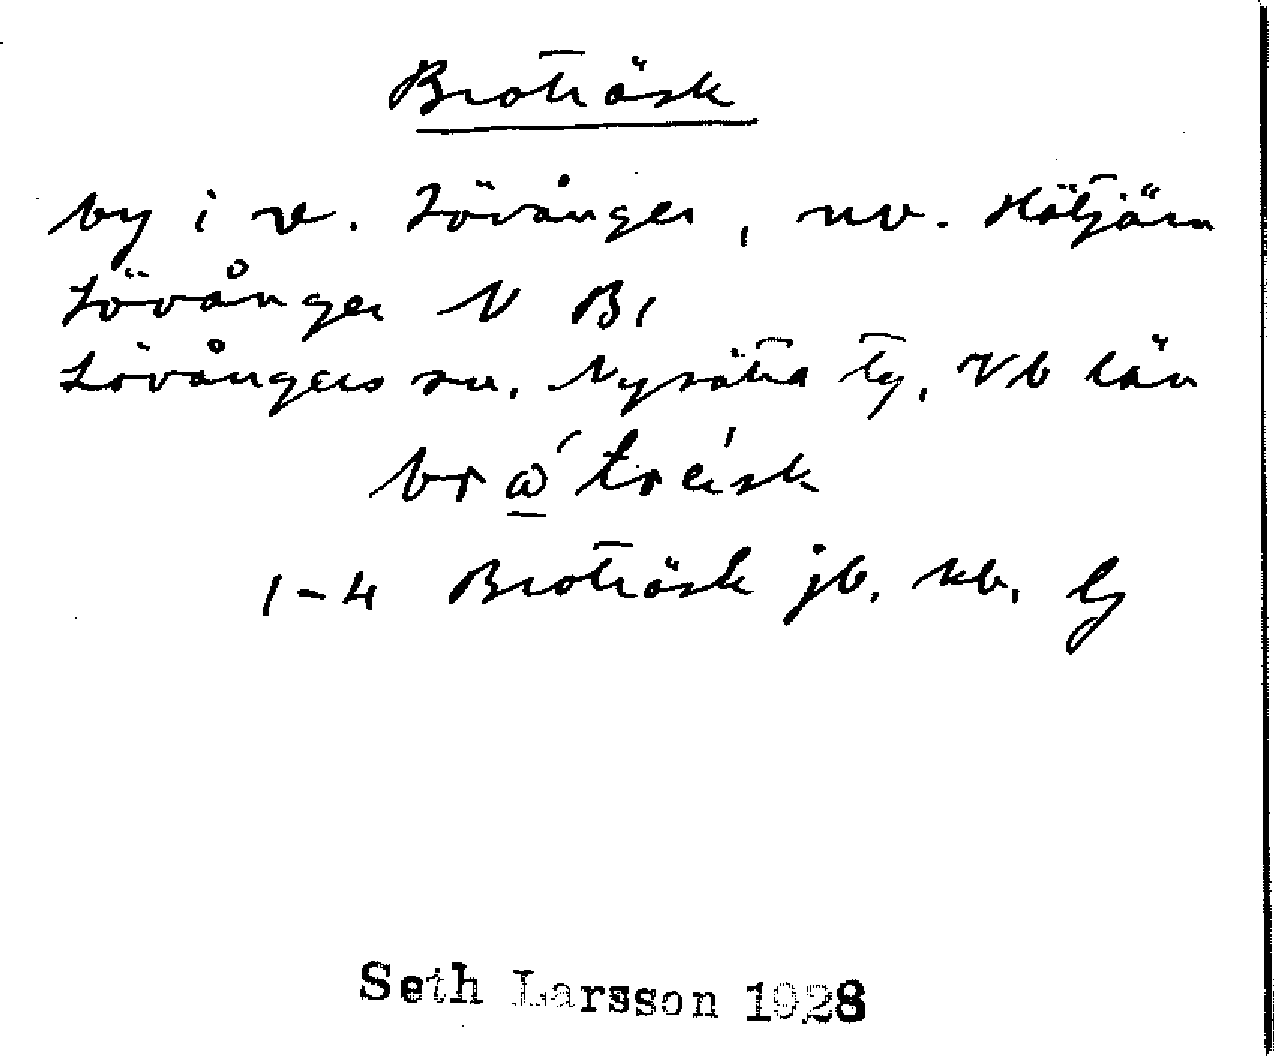 Broträsk
by i v. Lövånger, nv. Hötjärn
Lövånger N B1
Lövångers sn. Nysätra tg. Vb län
1-4 Broträsk jb. kb.
Seth Larsson 1928